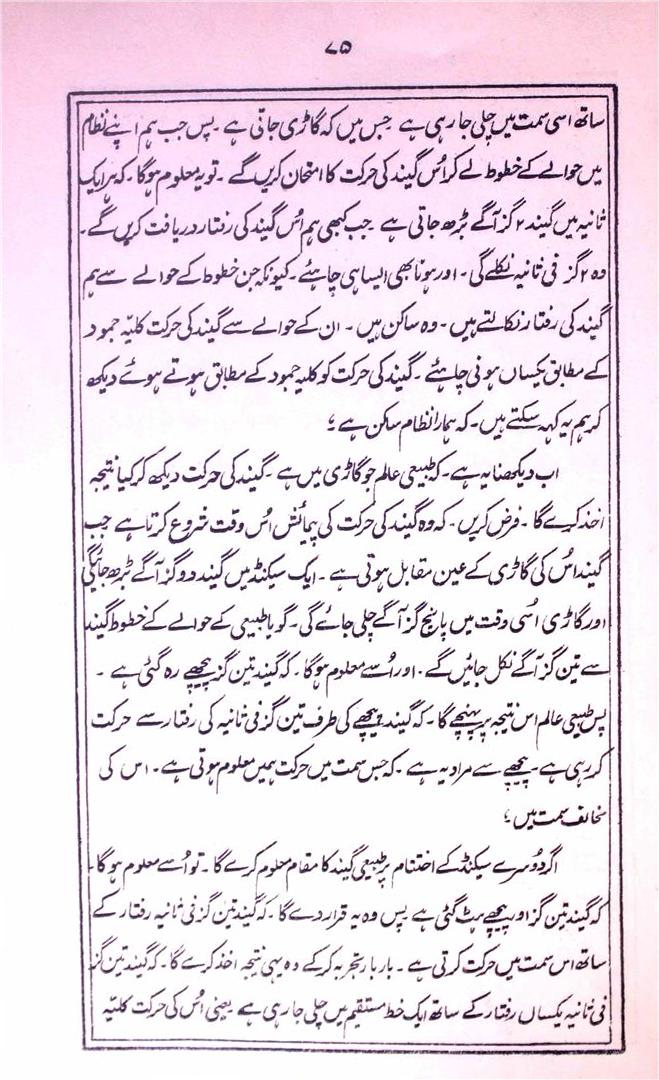 ۷۵
ساتھ اسی سمت میں چلی جا رہی ہے جس میں کہ گاڑی جاتی ہے ۔ پس جب ہم اپنے نظام
میں حوالے کے خطوط لے کر اُس گیند کی حرکت کا امتحان کریں گے ۔ تو یہ معلوم ہوگا ۔ کہ ہر ایک
ثانیہ میں گیند ۲ گز آگے بڑھ جاتی ہے ۔ جب کبھی ہم اُس گیند کی رفتار دریافت کریں گے ۔
وہ ۲ گز فی ثانیہ نکلے گی ۔ اور ہونا بھی ایسا ہی چاہئے ۔ کیونکہ جن خطوط کے حوالے سے ہم
گیند کی رفتار نکالتے ہیں ۔ وہ ساکن ہیں ۔ ان کے حوالے سے گیند کی حرکت کلیّہ جمود
کے مطابق یکساں ہونی چاہئے ۔ گیند کی حرکت کو کلیہ جمود کے مطابق ہوتے ہوئے دیکھ
کر ہم یہ کہہ سکتے ہیں ۔ کہ ہمارا نظام ساکن ہے ؛
اب دیکھنا یہ ہے ۔ کہ طبیعی عالم جو گاڑی میں ہے ۔ گیند کی حرکت دیکھ کر کیا نتیجہ
اخذ کرے گا ۔ فرض کریں ۔ کہ وہ گیند کی حرکت کی پیمائش اُس وقت شروع کرتا ہے جب
گیند اُس کی گاڑی کے عین مقابل ہوتی ہے ۔ ایک سیکنڈ میں گیند دو گز آگے بڑھ جائیگی
اور گاڑی اُسی وقت میں پانچ گز آگے چلی جائے گی ۔ گویا طبیعی کے حوالے کے خطوط گیند
سے تین گز آگے نکل جائیں گے ۔ اور اُسے معلوم ہوگا ۔ کہ گیند تین گز پیچھے رہ گئی ہے ۔
پس طبیعی عالم اس نتیجہ پر پہنچے گا ۔ کہ گیند پیچھے کی طرف تین گز فی ثانیہ کی رفتار سے حرکت
کر رہی ہے ۔ پیچھے سے مراد یہ ہے ۔ کہ جس سمت میں حرکت ہمیں معلوم ہوتی ہے ۔ اس کی
مخالف سمت میں ؛
اگر دُوسرے سیکنڈ کے اختتام پر طبیعی گیند کا مقام معلوم کرے گا ۔ تو اُسے معلوم ہوگا ۔
کہ گیند تین گز اور پیچھے ہٹ گئی ہے پس وہ یہ قرار دے گا ۔ کہ گیند تین گز فی ثانیہ رفتار کے
ساتھ اس سمت میں حرکت کرتی ہے ۔ بار بار تجربہ کر کے وہ یہی نتیجہ اخذ کرے گا ۔ کہ گیند تین گز
فی ثانیہ یکساں رفتار کے ساتھ ایک خط مستقیم میں چلی جا رہی ہے یعنی اُس کی حرکت کلیّہ